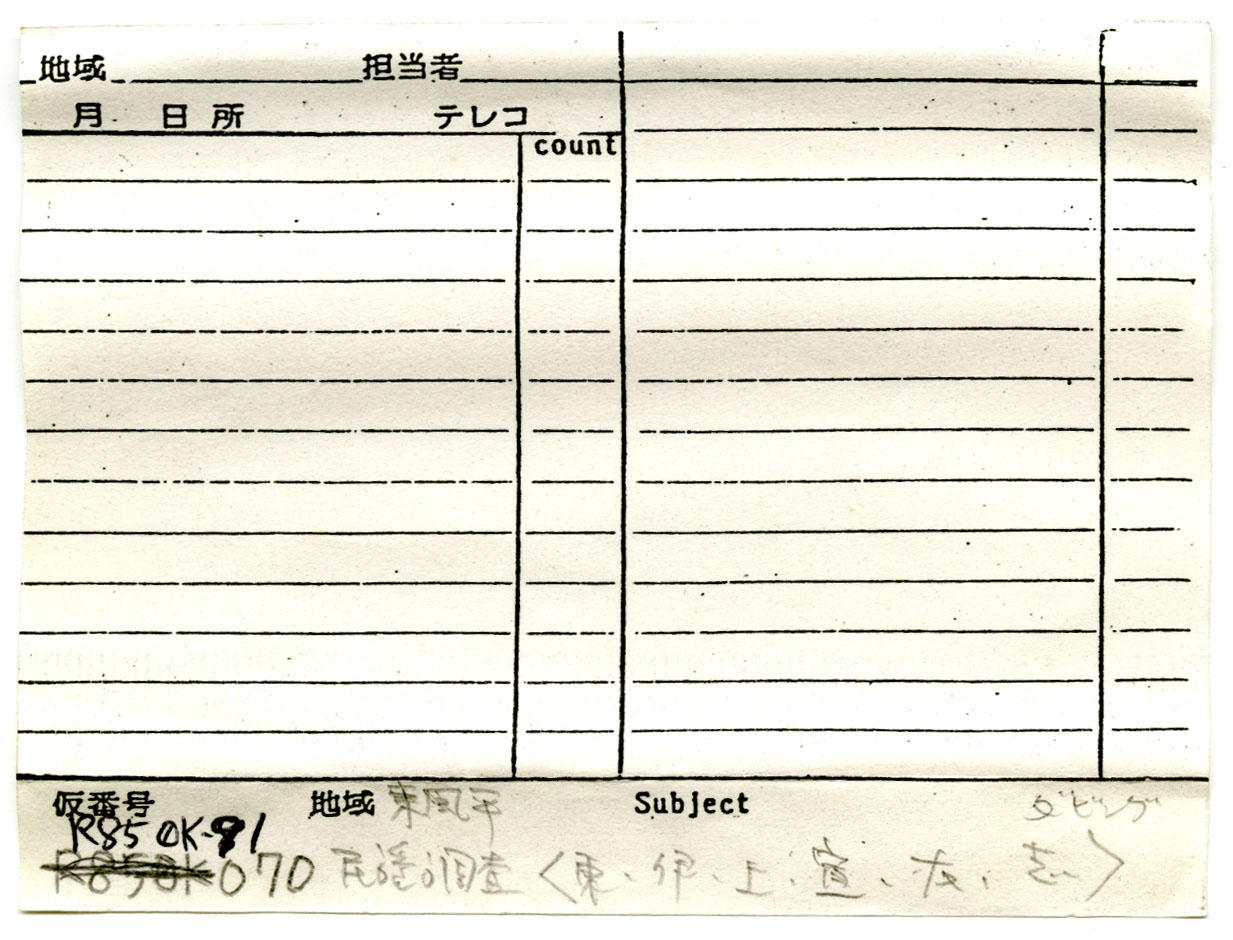 地域 担当者
月 日 所 テレコ
count
仮番号 地域 東風平 Subject ダビング
R85 OK-91
R85OK 070 民謡調査〈東、伊、上、宣、友、志〉